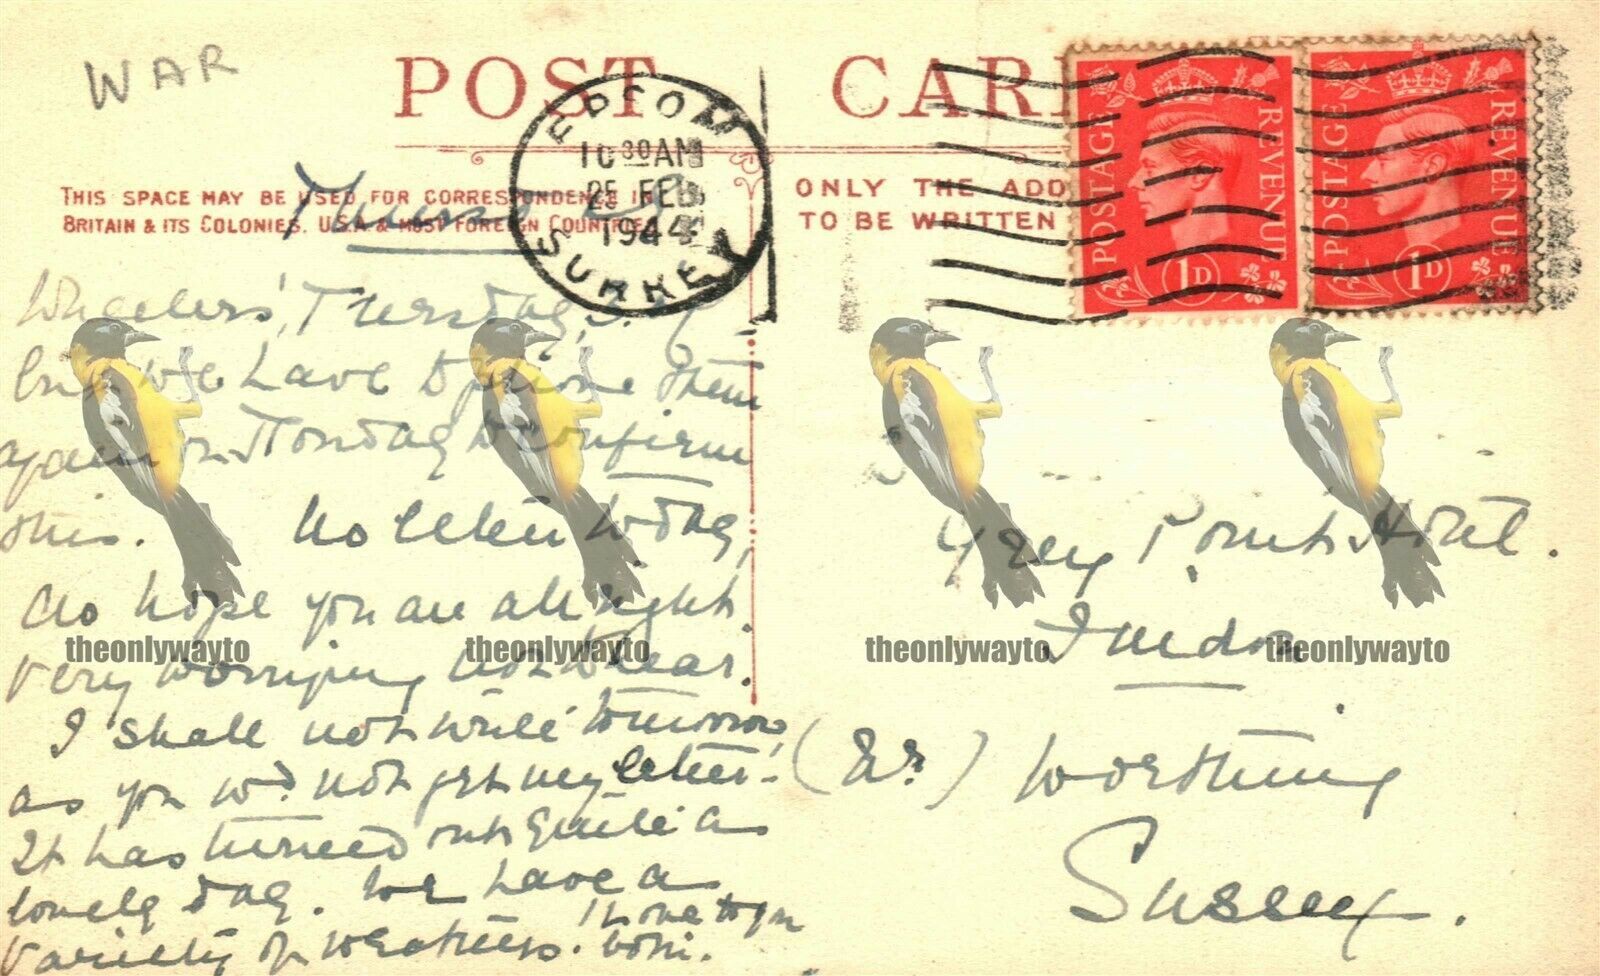 WAR
POST CARD
EPSOM
10 30 AM
25 FEB
1944
SURREY
POSTAGE REVENUE
1D
POSTAGE REVENUE
1D
THIS SPACE MAY BE USED FOR CORRESPONDENCE IN
BRITAIN & ITS COLONIES, U.S.A & MOST FOREIGN COUNTRIES.
ONLY THE ADD
TO BE WRITTEN
Thurs
Wheelers', Tuesday,
but we have to phone them
again on Monday to confirm
this. No letter today,
do hope you are all right.
Very worrying not to hear.
I shall not write tomorrow,
as you wd. not get my letter.
It has turned out quite a
lovely day. We have a
variety of weathers. 
love to you
both.
Point Hotel.
(Nr) Worthing
Sussex.
theonlywayto
theonlywayto
theonlywayto
theonlywayto